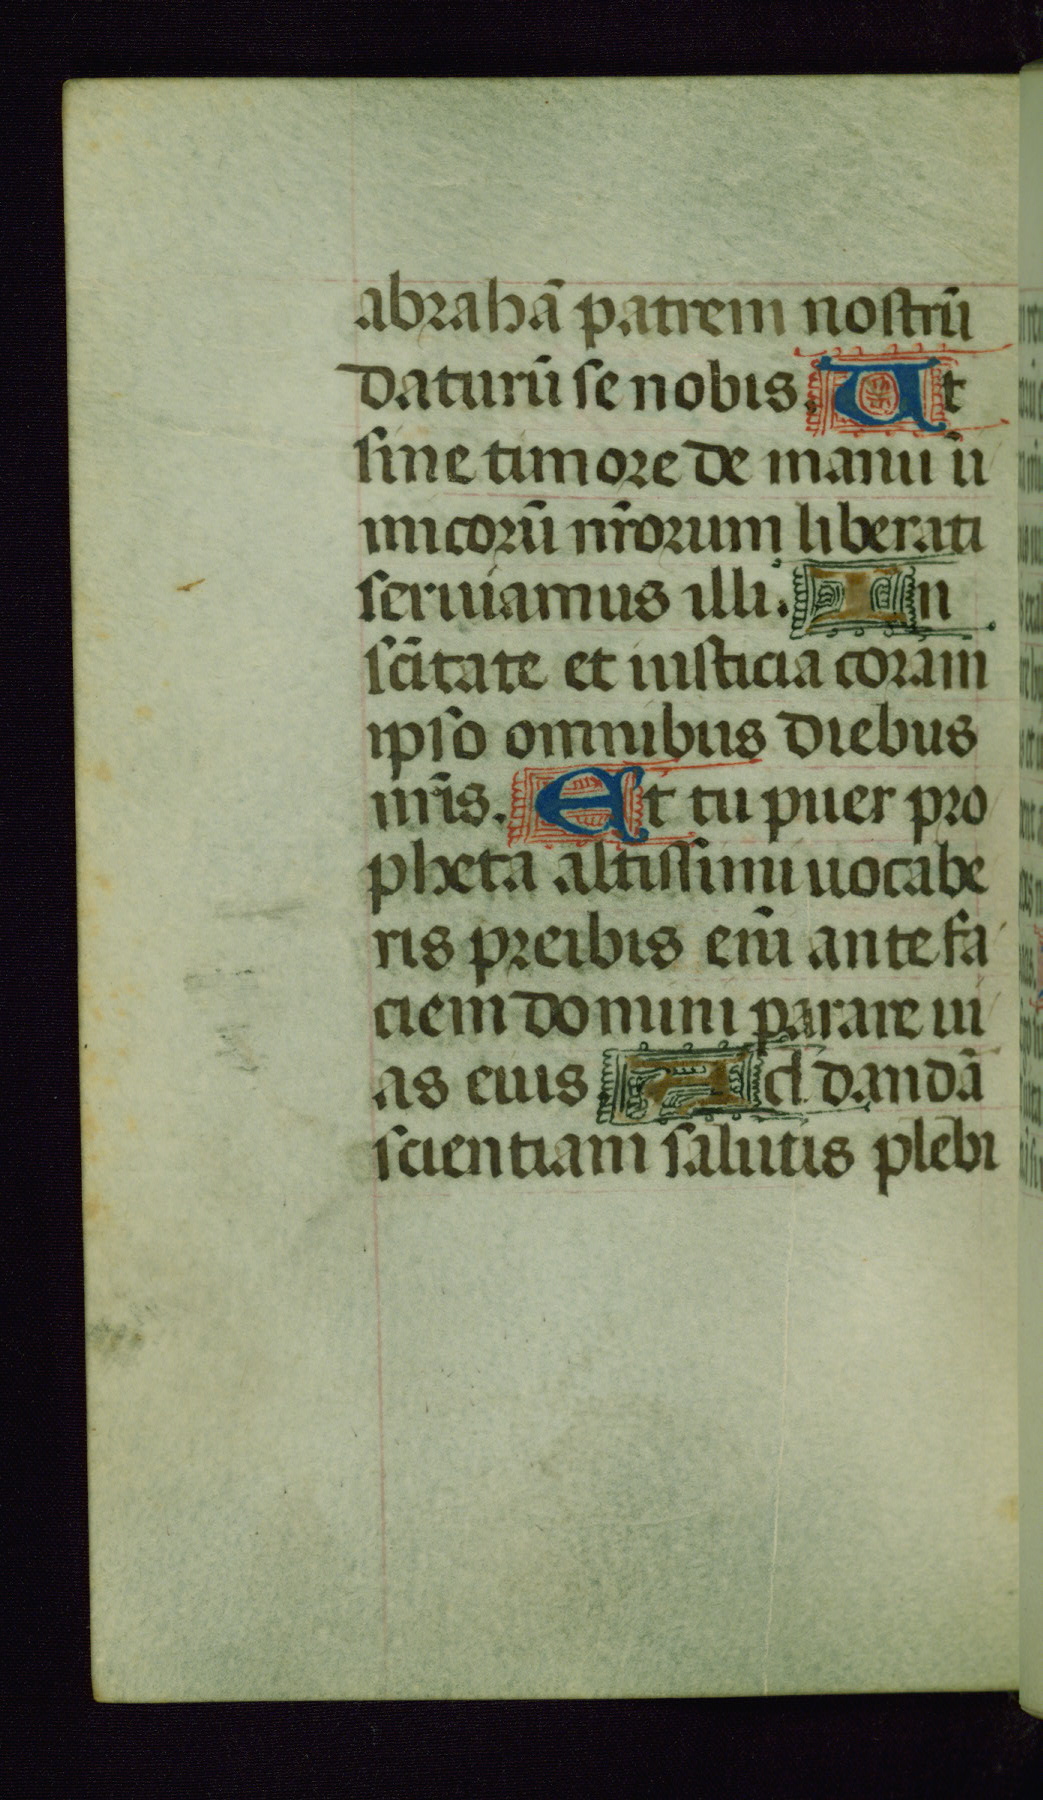 abrahã patrem nostrũ
daturũ se nobis. Ut
sine timore de manu ĩi
micorũ nr̃orum liberati
seruiamus illi. In
sc̃itate et iusticia coram
ipso omnibus diebus
nr̃is. Et tu puer pro
pheta altissimi uocabe
ris preibis em̃ ante fa
ciem domini parare ui
as eius Ad dandã
scientiam salutis plebi